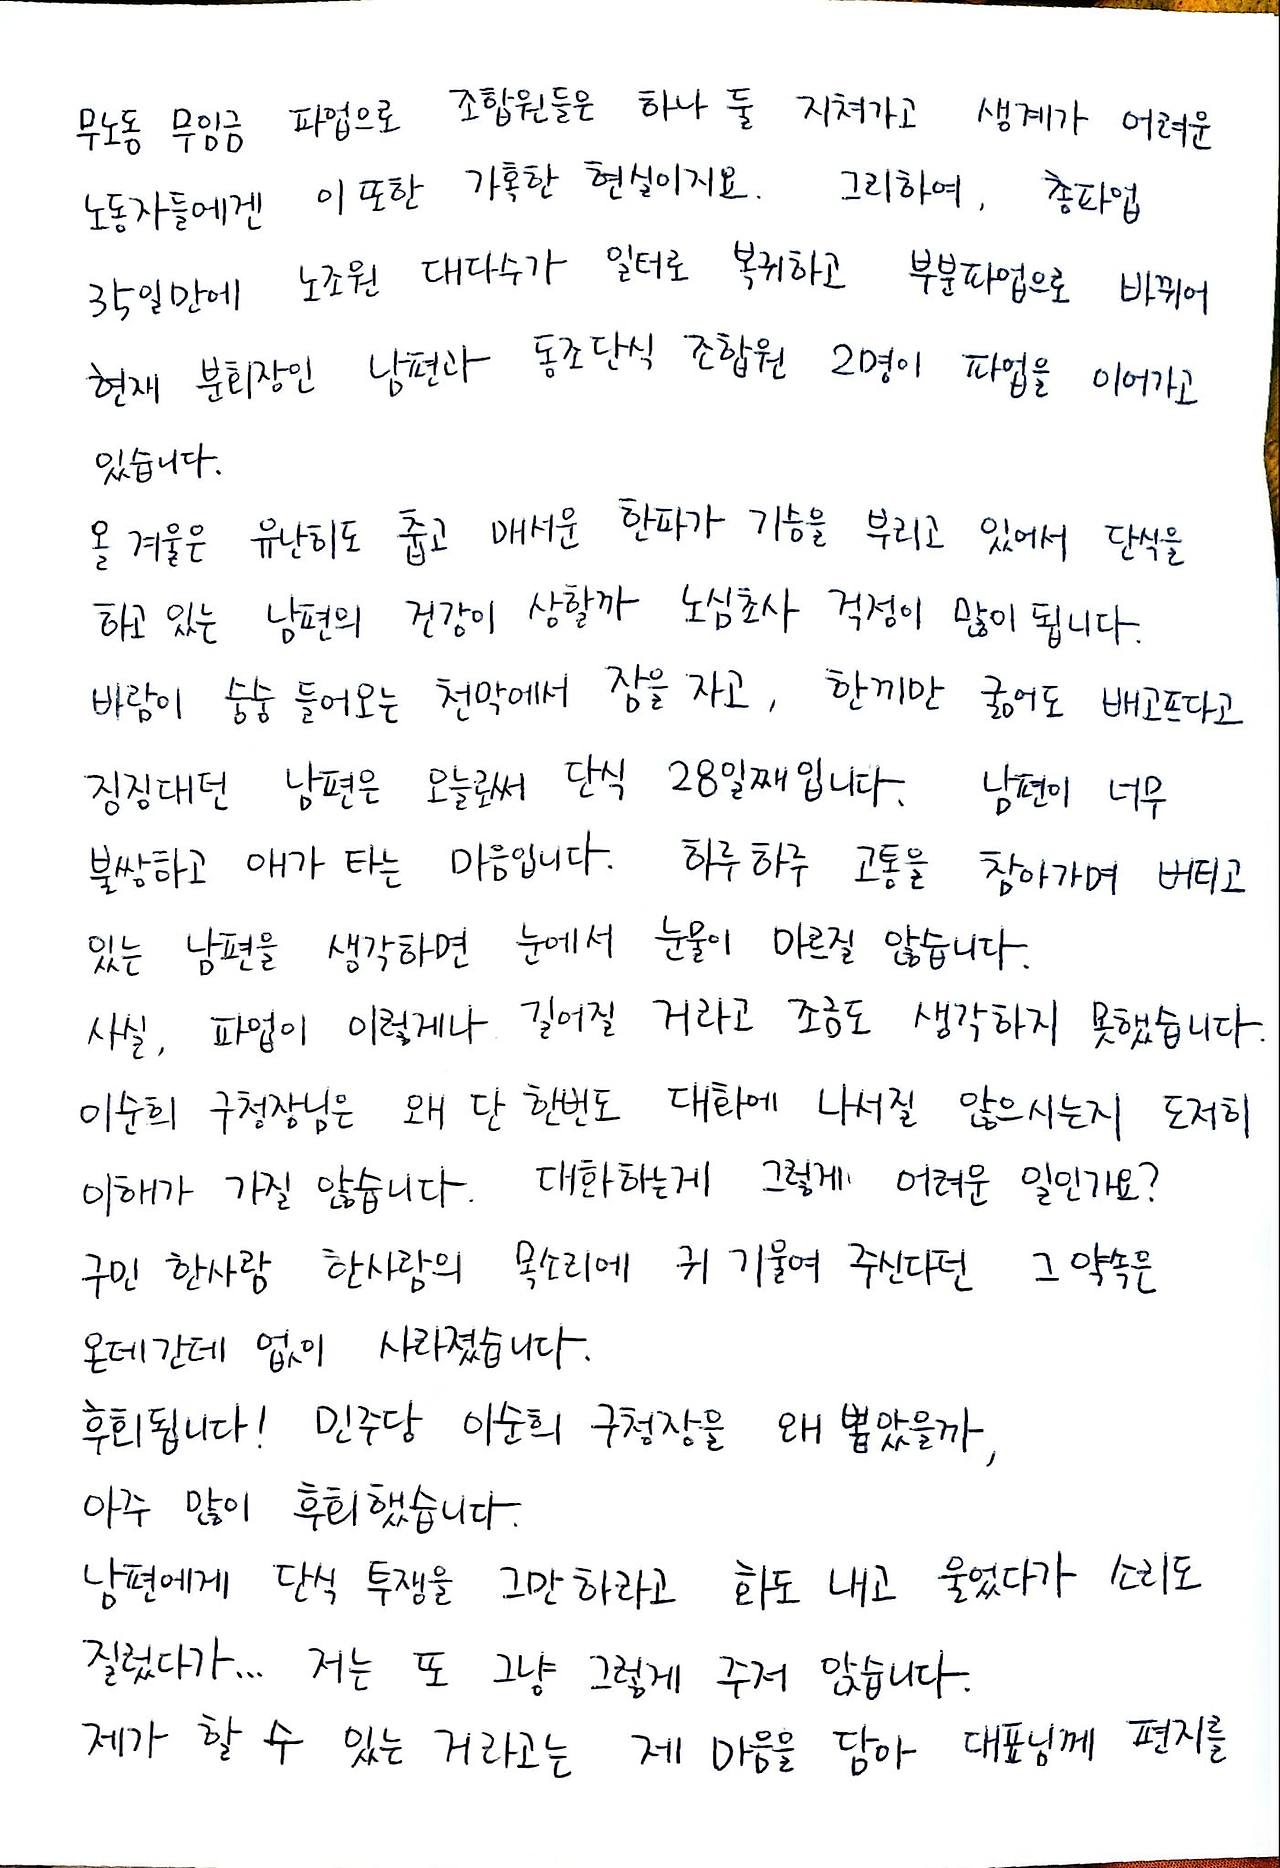 무노동 무임금 파업으로 조합원들은 하나 둘 지쳐가고 생계가 어려운
노동자들에겐 이 또한 가혹한 현실이지요. 그리하여, 총파업
35일만에 노조원 대다수가 일터로 복귀하고 부분파업으로 바뀌어
현재 분회장인 남편과 동조단식 조합원 2명이 파업을 이어가고
있습니다.
올 겨울은 유난히도 춥고 매서운 한파가 기승을 부리고 있어서 단식을
하고 있는 남편의 건강이 상할까 노심초사 걱정이 많이 됩니다.
바람이 숭숭 들어오는 천막에서 잠을 자고, 한끼만 굶어도 배고프다고
징징대던 남편은 오늘로써 단식 28일째입니다. 남편이 너무
불쌍하고 애가 타는 마음입니다. 하루하루 고통을 참아가며 버티고
있는 남편을 생각하면 눈에서 눈물이 마르질 않습니다.
사실, 파업이 이렇게나 길어질 거라고 조금도 생각하지 못했습니다.
이순희 구청장님은 왜 단 한번도 대화에 나서질 않으시는지 도저히
이해가 가질 않습니다. 대화하는게 그렇게 어려운 일인가요?
구민 한사람 한사람의 목소리에 귀 기울여 주신다던 그 약속은
온데간데 없이 사라졌습니다.
후회됩니다! 민주당 이순희 구청장을 왜 뽑았을까,
아주 많이 후회했습니다.
남편에게 단식 투쟁을 그만하라고 화도 내고 울었다가 소리도
질렀다가... 저는 또 그냥 그렇게 주저 앉습니다.
제가 할 수 있는 거라고는 제 마음을 담아 대표님께 편지를